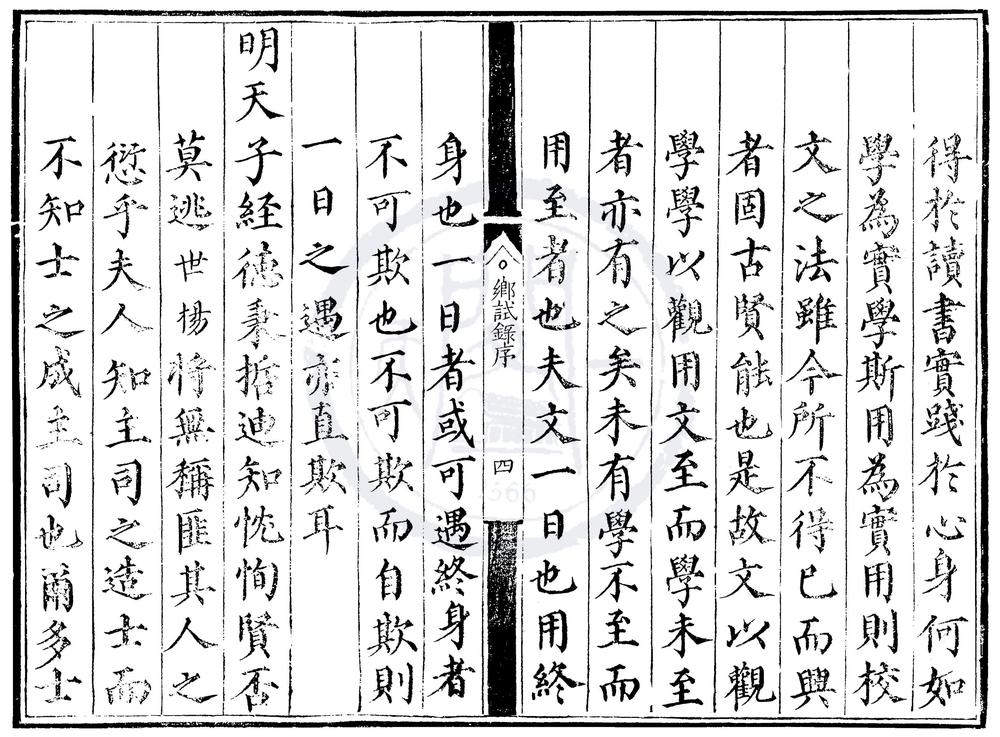 得於讀書實踐於心身何如
學為實學斯用為實用則校
文之法雖今所不得已而與
者固古賢能也是故文以觀
學學以觀用文至而學未至
者亦有之矣未有學不至而
用至者也夫文一日也用終
鄉試錄序
四
身也一日者或可遇終身者
不可欺也不可欺而自欺則
一日之遇亦直欺耳
明天子経德秉哲迪知忱恂賢否
莫逃世楊將無稱匪其人之
愆乎夫人知主司之造士而
不知士之成主司也爾多士